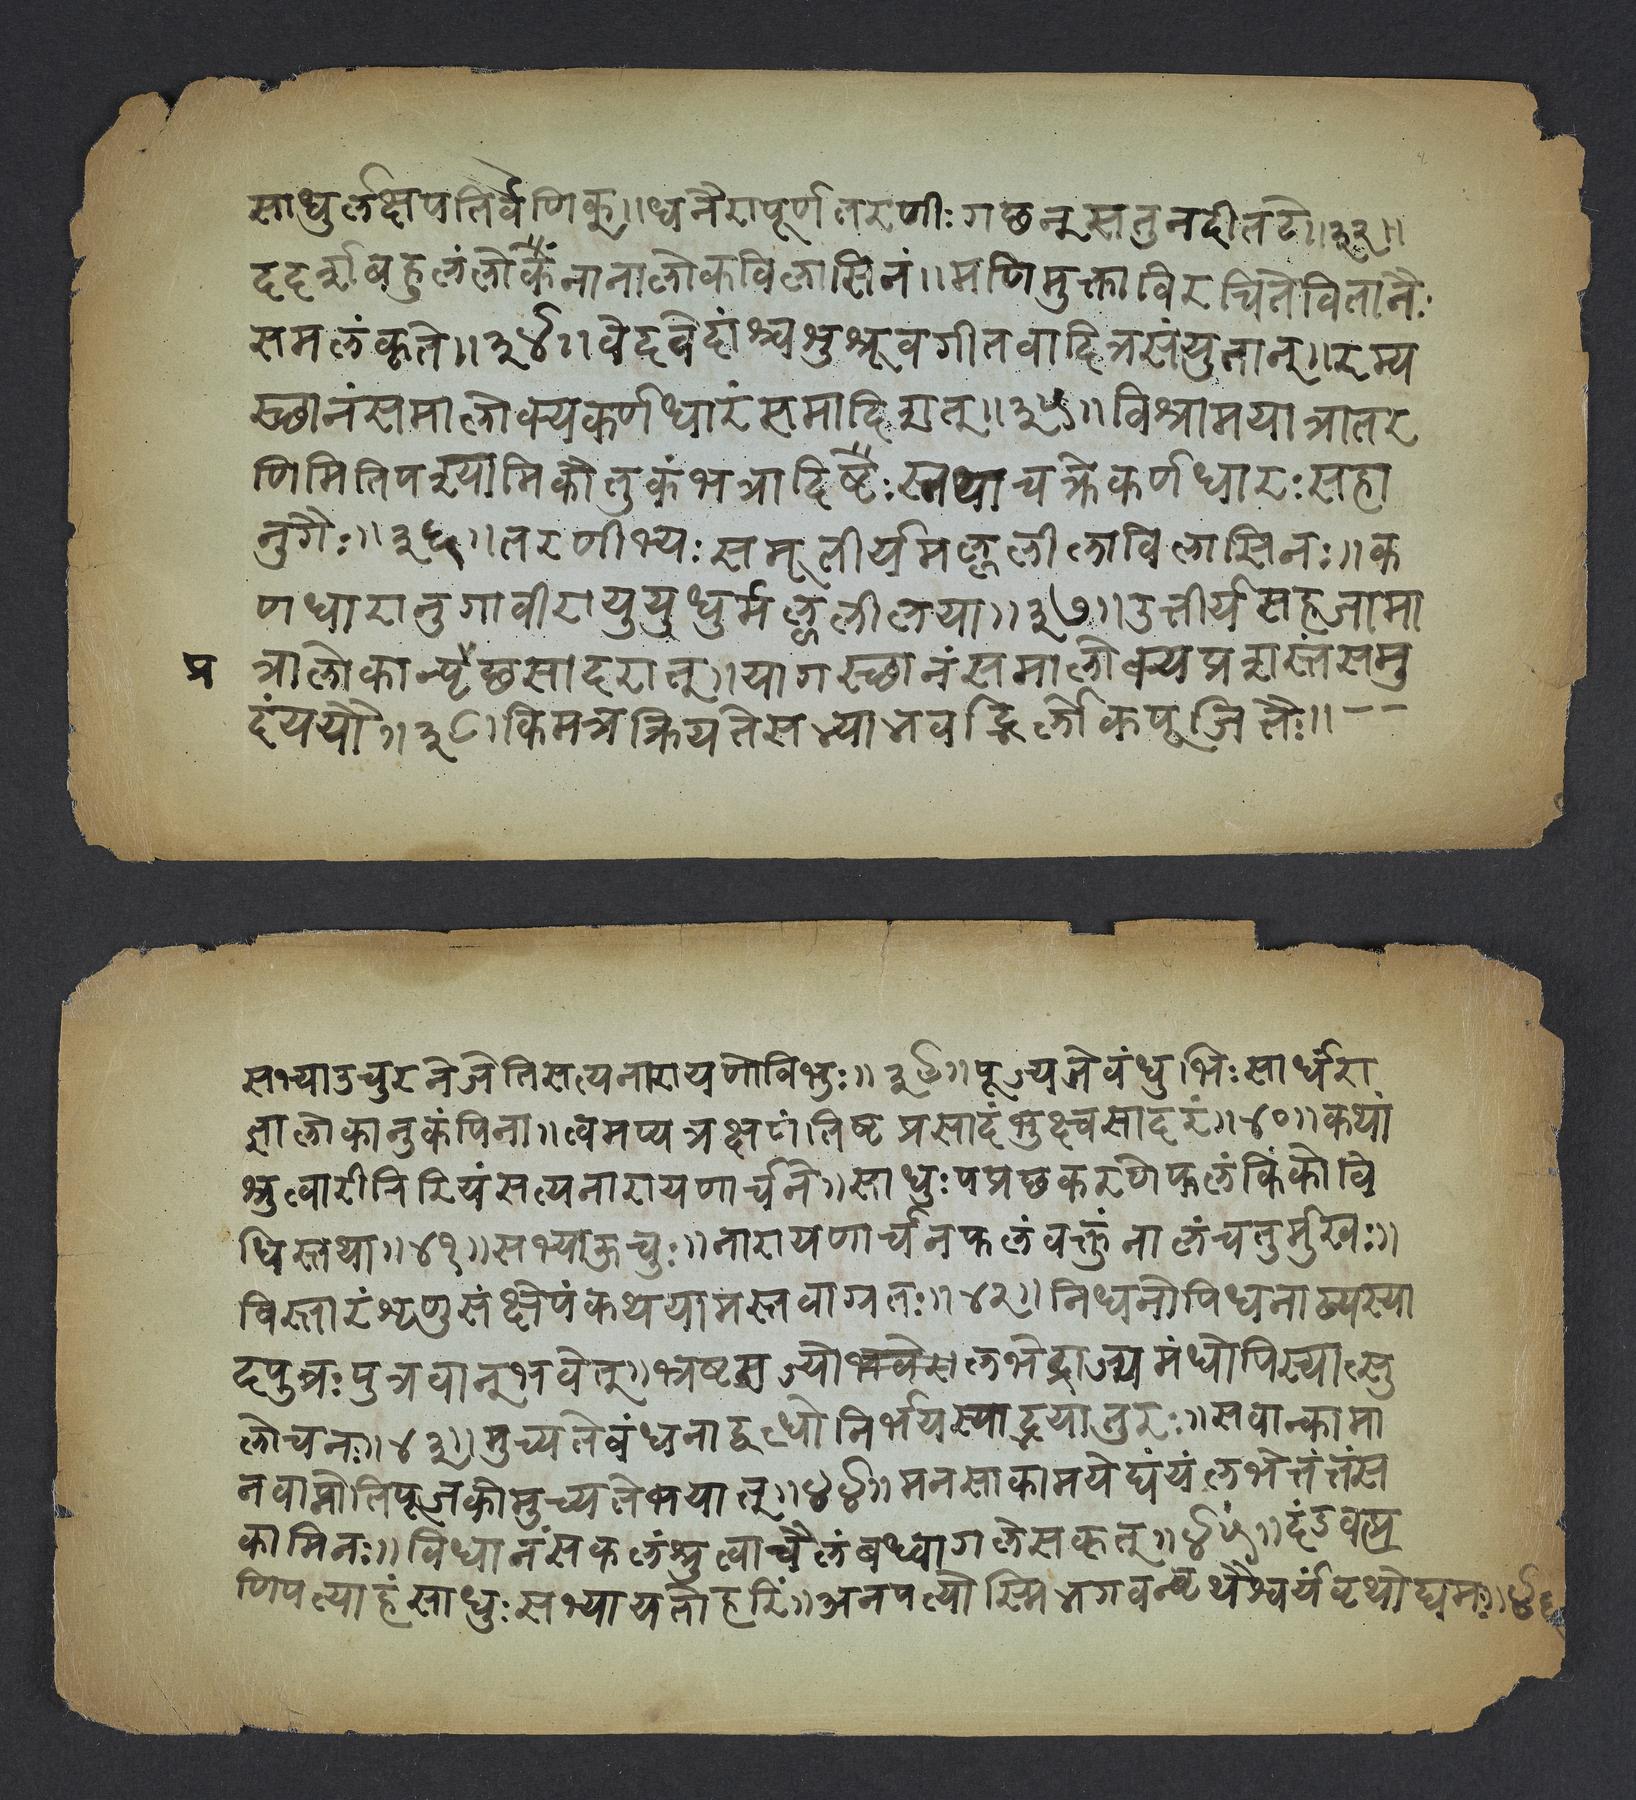 साधुर्लक्षपतिर्वणिक्॥धनैरापूर्णतरणीःगछन्सतुनदीतटे॥३३॥
ददर्शबहुलंलोकैंनानालोकविलासिनं॥मणिमुक्ताविरचितेवितानैः
समलंकृते॥३४॥वेदवेदांश्चशुश्रूवगीतवादित्रसंयुतान्॥रम्य
स्छानंसमालोक्यकर्णधारंसमादिशत्॥३५॥विश्रामयात्रातर
णिमितिपश्यामिकौतुकंभत्रादिष्टैःस्तथाचक्रेकर्णधारःसहा
नुगैः॥३६॥तरणीभ्यःसमूतीर्यमल्लुलीलाविलासिनः॥क
णधारानुगावीरायुयुधुर्मल्लुलीलया॥३७॥उत्तीर्यसहजामा
प्र त्रालोकान्पृछसादरात्॥यागस्छानंसमालोक्यप्रशस्तंसमु
दंययौ॥३८।किमत्रक्रियतेसभ्याभवद्भिर्लोकपूजितैः॥--
सभ्याउचुरनेजेतिसत्यनारायणोविभुः॥३९॥पूज्यतेबंधुभिःसार्धंरा
ज्ञालोकानुकंपिना॥त्वमप्यत्रक्षणंतिष्टप्रसादंभुक्ष्वसादरं॥४०॥कथां
श्रुत्वारीतिरियंसत्यनारायणार्चने॥साधुःपप्रछकरणेफलंकिंकोवि
धिस्तथा॥४१॥सभ्याऊचुः॥नारायणार्चनफलंवक्तुंनालंचतुर्मुखः॥
विस्तारंशृणुसंक्षेपंकथयामस्तवाग्रतः॥४२॥निधनोपिधनाढ्यस्या
दपुत्रःपुत्रवान्भवेत्॥भ्रष्टराज्योलभेद्राज्यमंधोपिस्यात्सु
लोचनः॥४३॥मुच्यतेबंधनाद्बध्धोनिर्भयस्याद्भयातुरः॥सवान्कामा
नवाप्नोतिपूजकोमुच्यतेभयात्॥४४॥मनसाकामयेद्यंयंलभेत्तंतंस
कामिनः॥विधानंसकलंश्रुत्वाचैलंबध्वागलेसकृत्॥४५॥दंडवत्प्र
णिपत्याहंसाधुःसभ्यायतोहरिं॥अनपत्योस्मिभगवन्वृथैश्वर्यंवृथोद्यमः॥४६